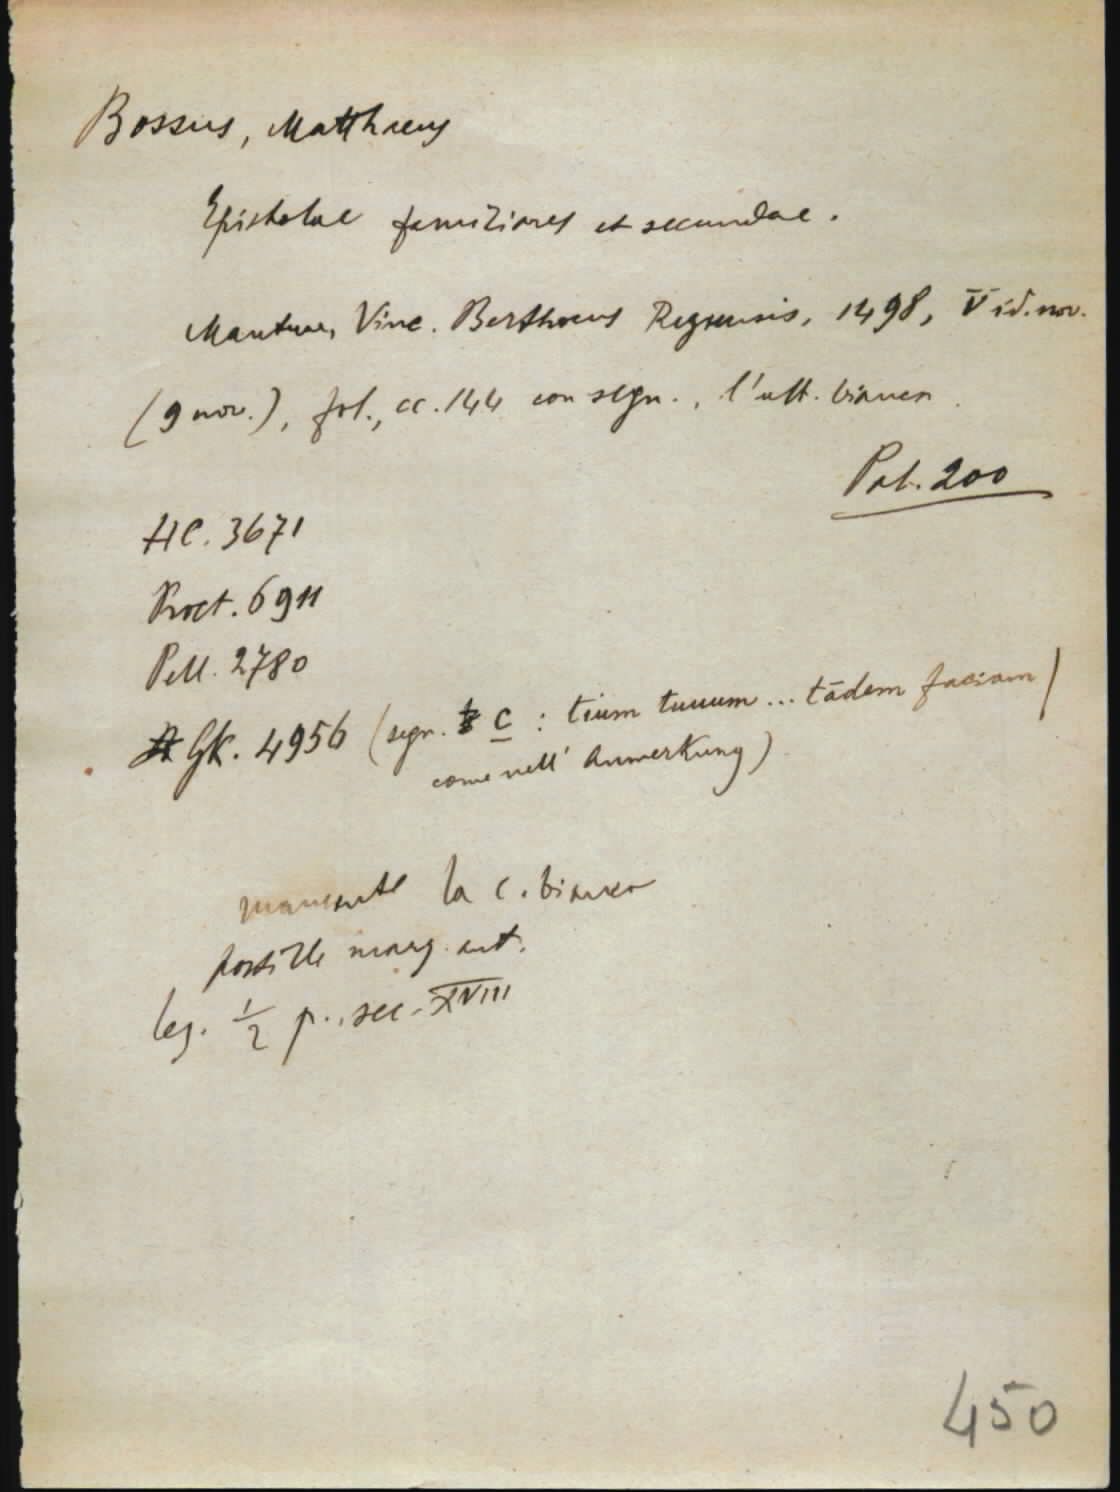 Bossus, Matthaeus
Epistolae familiares et secundae.
Mantuae, Vinc. Berthocus Regiensis, 1498, V id. nov.
(9 nov.), fol., cc. 144 con segn., l'ult. bianca.
Pal. 200
HC. 3671
Proct. 6911
Pell. 2780
GK. 4956 (segn. c : tium tuuum ... tādem faciam /
come nell' Anmerkung)
mancante la c. bianca
postille marg. ant.
leg. 1/2 p., sec. XVIII
450